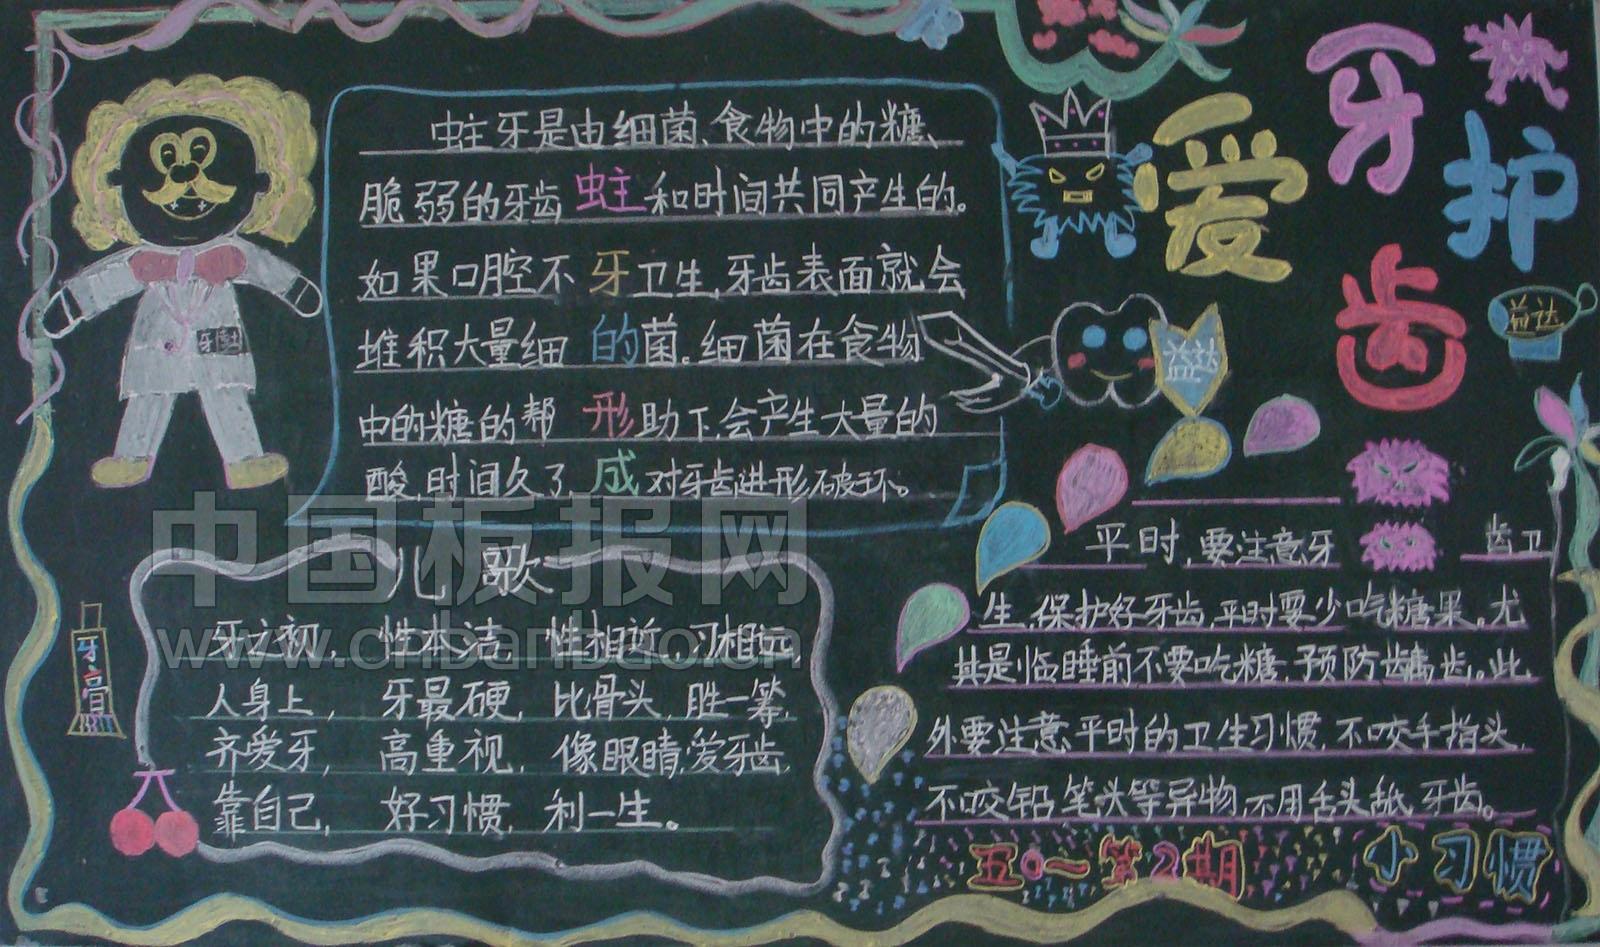 爱牙护齿
益达
益达
牙医
蛀牙是由细菌、食物中的糖、
脆弱的牙齿 和时间共同产生的。
如果口腔不卫生,牙齿表面就会
堆积大量细菌。细菌在食物
中的糖的帮助下,会产生大量的
酸,时间久了,对牙齿进形破坏。
蛀牙的形成
儿歌
牙之初, 性本洁, 性相近,习相远,
人身上, 牙最硬, 比骨头,胜一筹,
齐爱牙, 高重视, 像眼睛,爱牙齿,
靠自己, 好习惯, 利一生。
牙膏
平时,要注意牙齿卫
生,保护好牙齿,平时要少吃糖果。尤
其是临睡前不要吃糖,预防龋齿。此
外要注意平时的卫生习惯,不咬手指头,
不咬铅笔头等异物,不用舌头舐牙齿。
小习惯
五〇一第2期
中国板报网
www.cnbanbao.cn